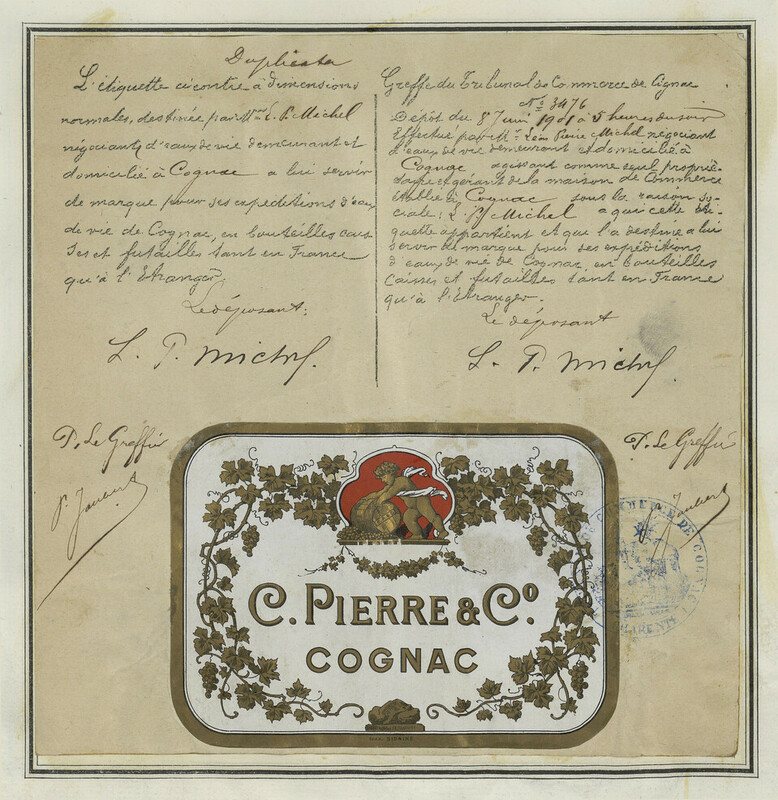 Duplicata
L'étiquette ci contre à dimensions
normales, destinée par Mr L. P. Michel
négociant d'eaux de vie demeurant et
domicilié à Cognac a lui servir
de marque pour ses expéditions d'eaux
de vie de Cognac, en bouteilles cais
ses et futailles tant en France
qu'à l'Etranger
Le déposant:
L. P. Michel.
P. Le Greffier
P. Joubert
Greffe du Tribunal de Commerce de Cognac
No 3476
Dépôt du 8 Juin 1901 à 5 heures du soir
Effectué par Mr Léon Pierre Michel négociant
d'eaux de vie demeurant et domicilié à
Cognac agissant comme seul proprié-
taire et gérant de la maison de Commerce
établie à Cognac sous la raison So-
ciale: L. P. Michel a qui cette éti-
quette appartient et que l'a destine a lui
servir de marque pour ses expéditions
d'eaux de vie de Cognac en bouteilles
caisses et futailles tant en France
qu'à l'Etranger.
Le déposant
L. P. Michel.
P. Le Greffier
Joubert
C. PIERRE & Co.
COGNAC